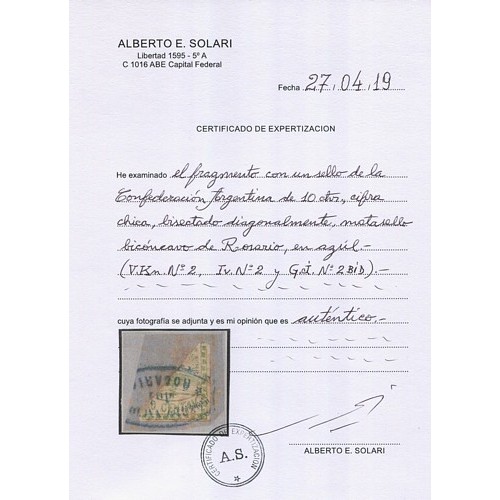 ALBERTO E. SOLARI
Libertad 1595 - 5º A
C 1016 ABE Capital Federal
Fecha 27/04/19
CERTIFICADO DE EXPERTIZACION
He examinado el fragmento con un sello de la
Confederación Argentina de 10 ctvs, cifra
chica, bisectado diagonalmente, matasello
bicóncavo de Rosario, en azúl -
(V.Kn. Nº 2, Iv. Nº 2 y G.J. Nº 2BiD).-
cuya fotografía se adjunta y es mi opinión que es auténtico.-
ROSARI
CERTIFICADO DE EXPERTIZACION
A.S.
ALBERTO E. SOLARI